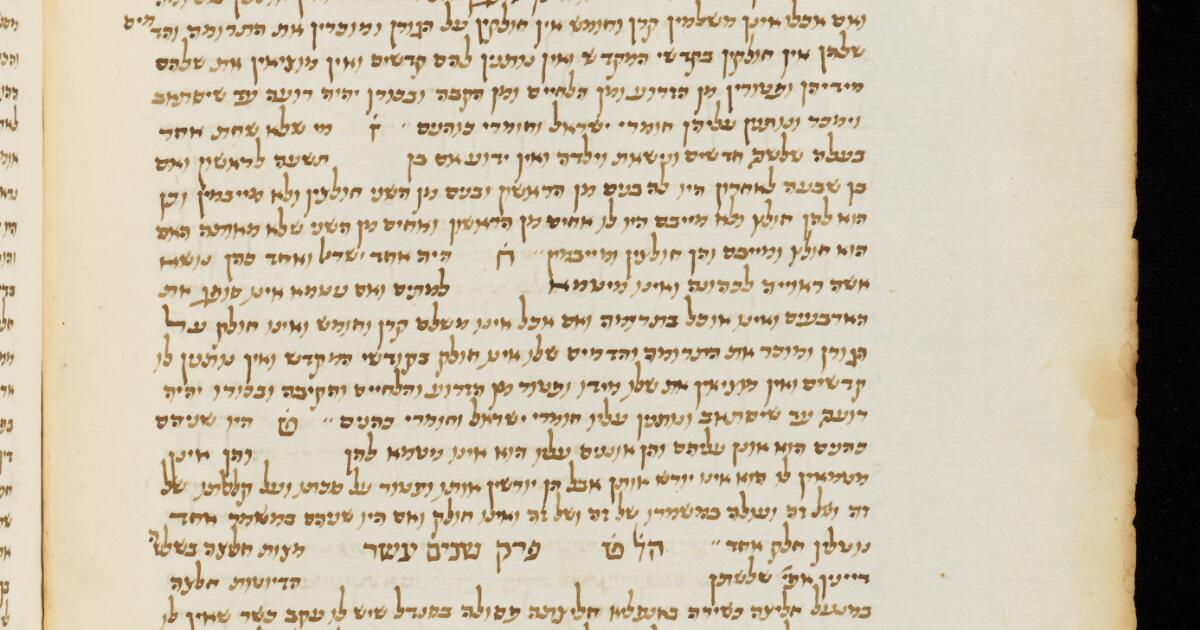 ואם אכלו אינן משלמין קרן וחומש אין חולקין על הגורן ומוכרין את התרומה והדמים
שלהן אין חולקין בקדשי המקדש ואין נותנין להם קדשים ואין מוציאין את שלהם
מידיהן ופטורין מן הזרוע ומן הלחיים ומן הקבה ובכורן יהיה רועה עד שיסתאב
וימכר ונותנין עליהן חומרי ישראל וחומרי כהנים ״ ז מי שלא שהת אחר
בעלה שלשה חדשים ונישאת וילדה ואין ידוע אם בן תשעה לראשון ואם
בן שבעה לאחרון היו לה בנים מן הראשון ובנים מן השני חולצין ולא מייבמין וכן
הוא להן חולץ ולא מייבם היו לו אחים מן הראשון ואחים מן השני שלא מאותה האם
הוא חולץ ומייבם והן חולצין ומייבמין ״ ח היה אחד ישראל ואחד כהן נושא
אשה ראוייה לכהונה ואינו מיטמא למתים ואם נטמא אינו סופג את
הארבעים ואינו אוכל בתרומה ואם אכל אינו משלם קרן וחומש ואינו חולק על
הגורן ומוכר את התרומה והדמים שלו אינו חולק בקודשי המקדש ואין נותנין לו
קדשים ואין מוציאין את שלו מידו ופטור מן הזרוע והלחיים והקיבה ובכורו יהיה
רועה עד שיסתאב ונותנין עליו חומרי ישראל וחומרי כהנים ״ ט היו שניהם
כהנים הוא אונן עליהם והן אוננים עליו הוא אינו מטמא להן והן אינן
מטמאין לו הוא אינו יורש אותן אבל הן יורשין אותו ופטור על מכתו ועל קללתו של
זה ושל זה ועולה במשמרו של זה ושל זה ואינו חולק ואם היו שניהם במשמר אחד
נוטלין חלק אחד ״ הל ט פרק שנים עשר מצות חליצה בשלשה
דיינין שלשתן הדיוטות חלצה
במנעל חליצתה כשירה באנפליא חליצתה פסולה בסנדל שיש לו עקב כשר שאין לו